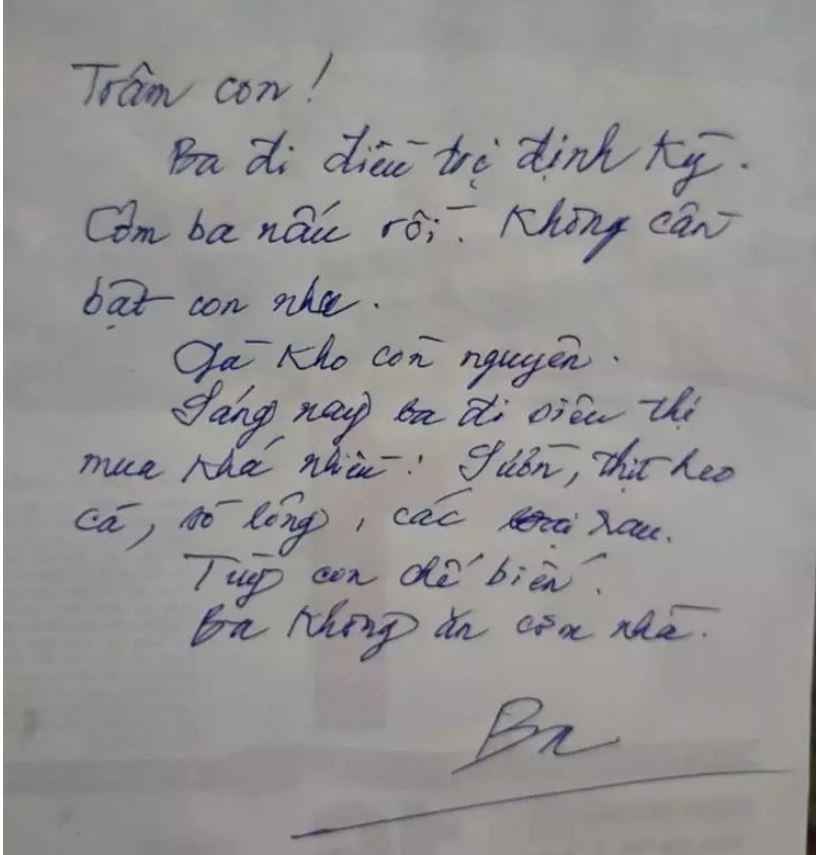 Trâm con!
Ba đi điều trị định kỳ.
Cơm ba nấu rồi. Không cần
bật con nha.
Gà kho còn nguyên.
Sáng nay ba đi siêu thị
mua khá nhiều: Sườn, thịt heo
cá, sò lông, các loại rau.
Tùy con chế biến.
Ba không ăn cơm nhà.
Ba